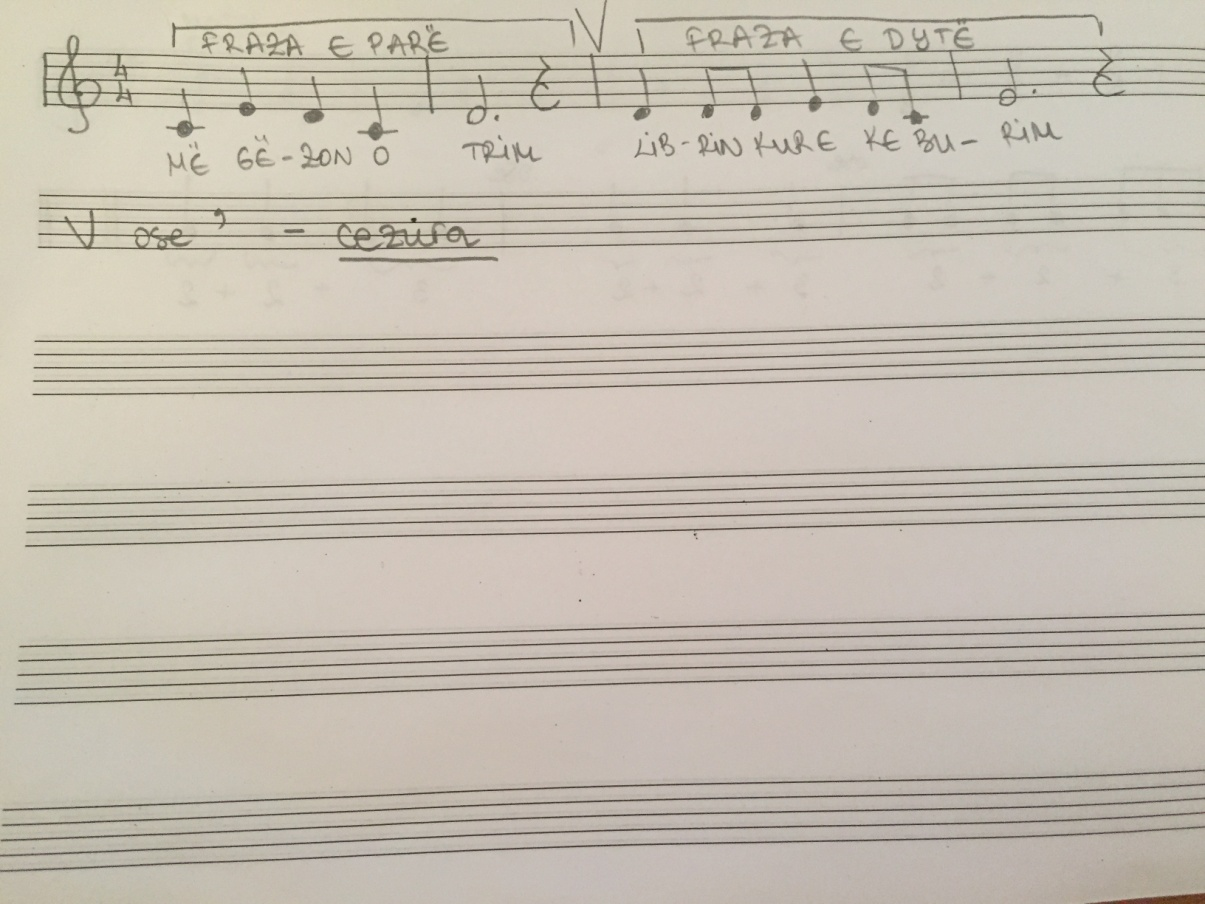 FRAZA E PARË V FRAZA E DYTË
4
4
MË GË-ZON O TRIM LIB-RIN KUR E KE BU-RIM
V ose ’ - cezura